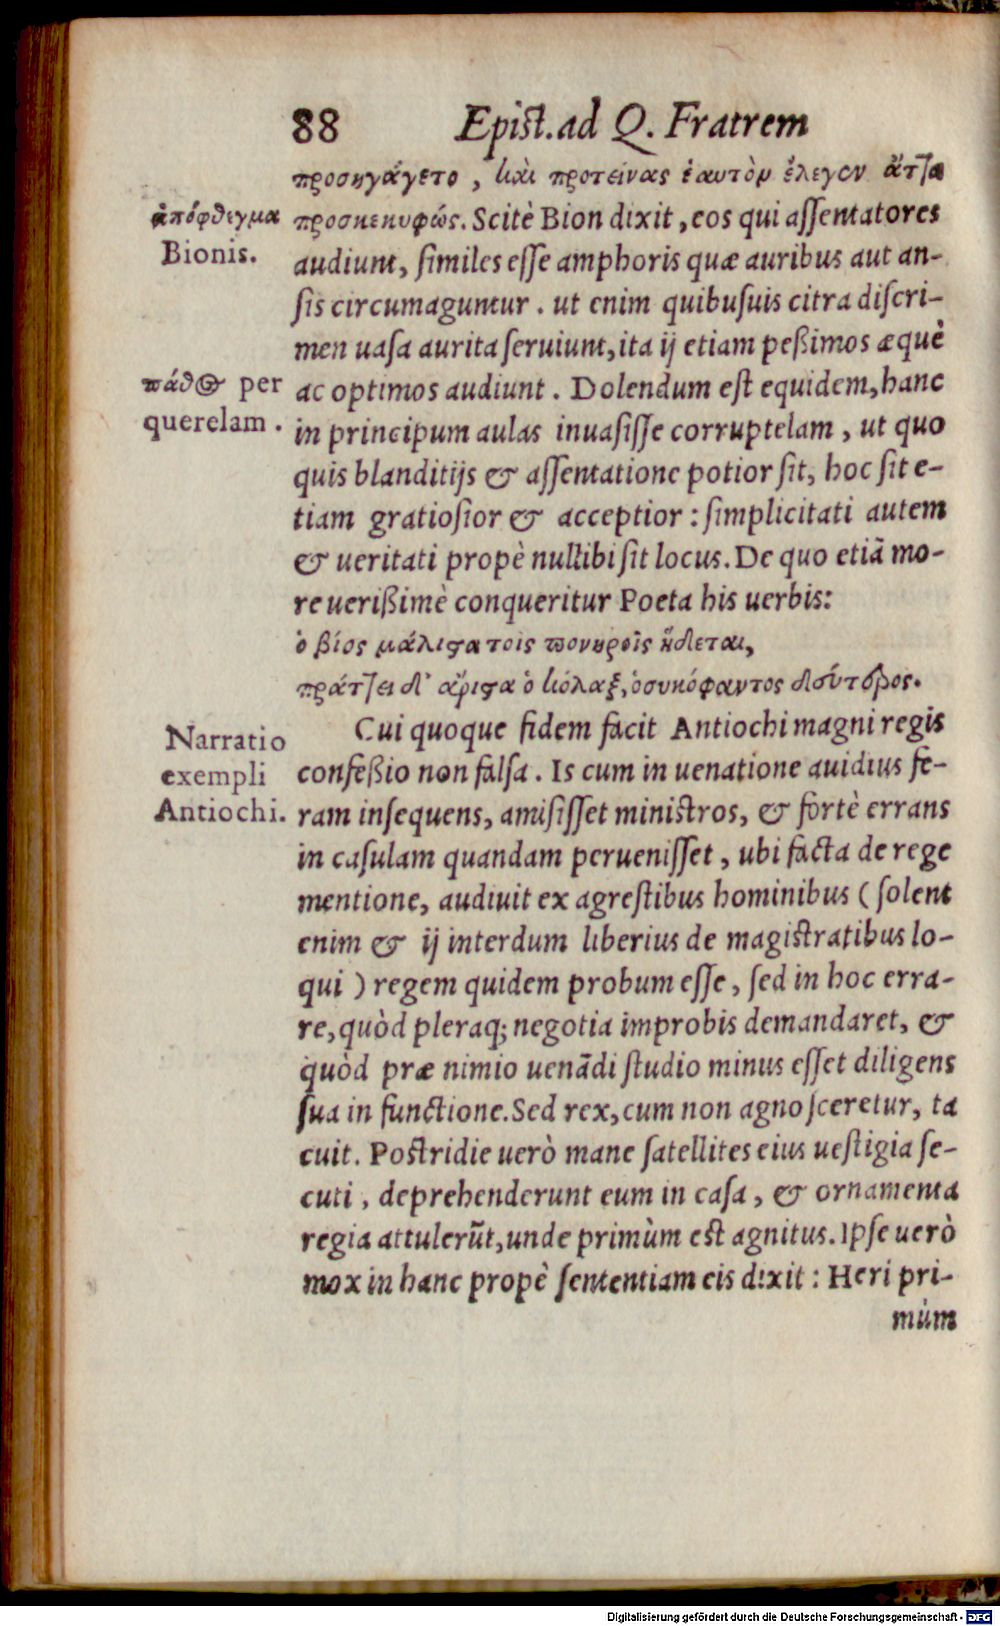 88 Epist. ad Q. Fratrem
προσηγάγετο, καὶ προτείνας ἑαυτὸν ἔλεγεν ἅττα
ἀπόφθεγμα
Bionis.
προσκεκυφώς. Scitè Bion dixit, eos qui assentatores
audiunt, similes esse amphoris quæ auribus aut an-
sis circumaguntur. ut enim quibusuis citra discri-
men uasa aurita seruiunt, ita ij etiam peßimos æquè
πάθος per
querelam.
ac optimos audiunt. Dolendum est equidem, hanc
in principum aulas inuasisse corruptelam, ut quo
quis blanditijs & assentatione potior sit, hoc sit e-
tiam gratiosior & acceptior: simplicitati autem
& ueritati propè nullibi sit locus. De quo etiã mo-
re uerißimè conqueritur Poeta his uerbis:
ὁ βίος μάλιστα τοῖς πονηροῖς ἥδεται,
πράττει δ' ἄριστα ὁ κόλαξ, ὁ συκόφαντος δεύτερος.
Narratio
exempli
Antiochi.
Cui quoque fidem facit Antiochi magni regis
confeßio non falsa. Is cum in uenatione auidius fe-
ram insequens, amisisset ministros, & fortè errans
in casulam quandam peruenisset, ubi facta de rege
mentione, audiuit ex agrestibus hominibus (solent
enim & ij interdum liberius de magistratibus lo-
qui) regem quidem probum esse, sed in hoc erra-
re, quòd pleraq; negotia improbis demandaret, &
quòd præ nimio uenãdi studio minus esset diligens
sua in functione. Sed rex, cum non agnosceretur, ta
cuit. Postridie uerò mane satellites eius uestigia se-
cuti, deprehenderunt eum in casa, & ornamenta
regia attulerũt, unde primùm est agnitus. Ipse uerò
mox in hanc propè sententiam eis dixit: Heri pri-
mùm
Digitalisierung gefördert durch die Deutsche Forschungsgemeinschaft - DFG